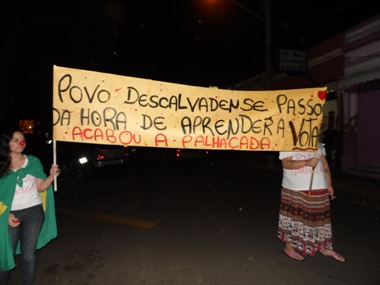 POVO DESCALVADENSE PASSOU
DA HORA DE APRENDER A VOTAR
ACABOU A PALHAÇADA